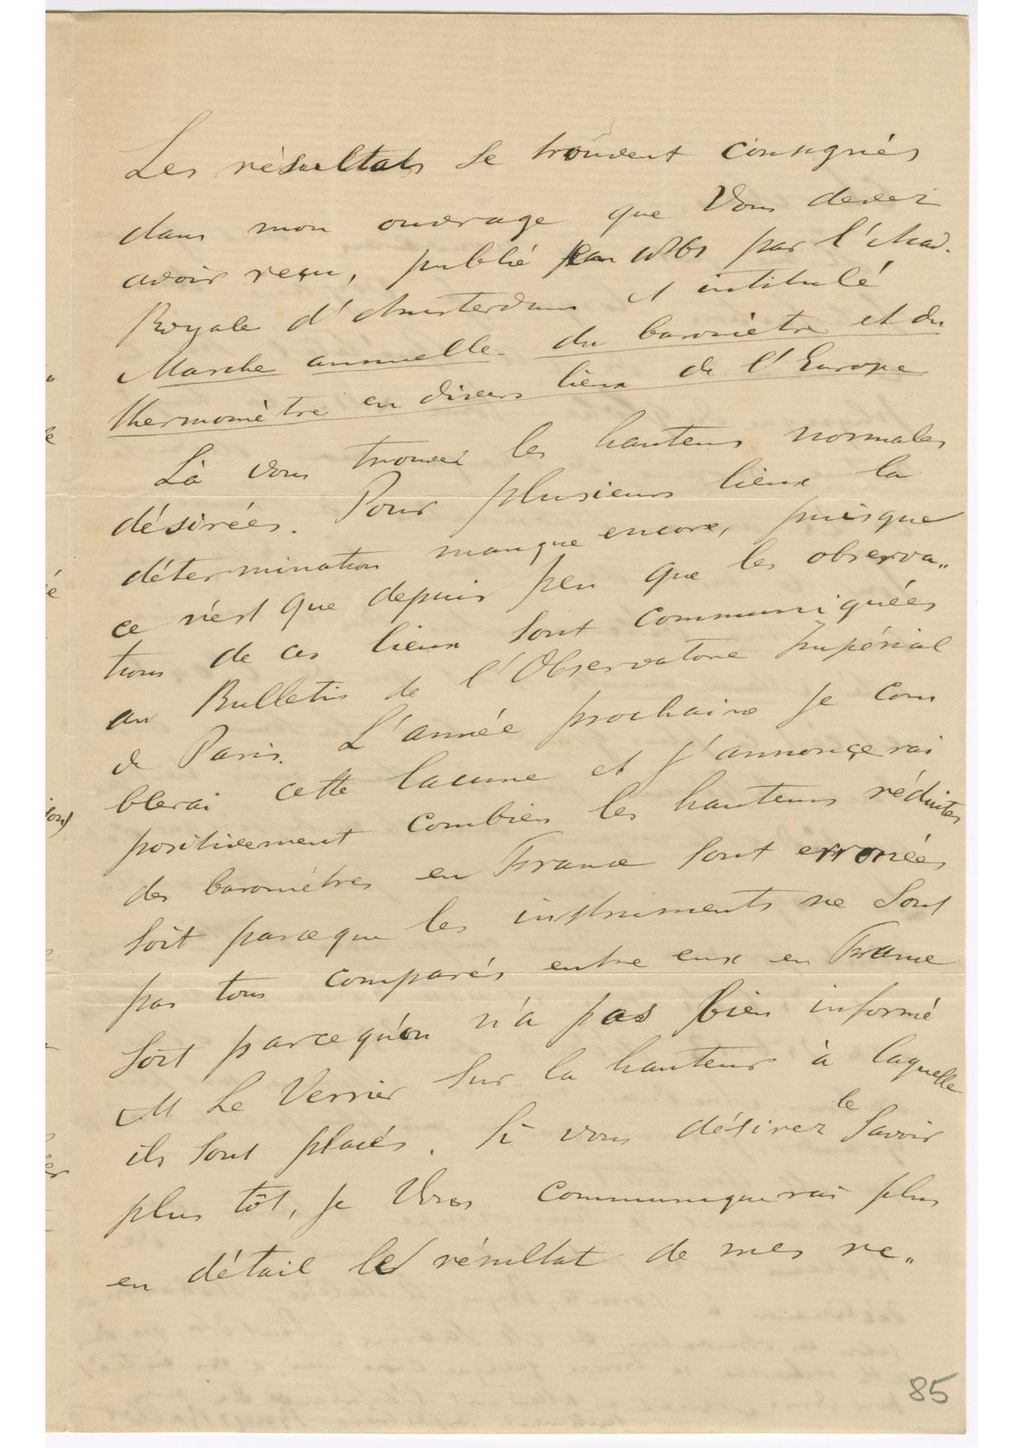 Les résultats se trouvent consignés
dans mon ouvrage que Vous devez
avoir reçu, publié en 1861 par l'Acad.
Royale d'Amsterdam et intitulé
Marche annuelle du baromètre et du
thermomètre en divers lieux de l'Europe
Là vous trouvez les hauteurs normales
désirées. Pour plusieurs lieux la
détermination manque encore, puisque
ce n'est que depuis peu que les observa„
tions de ces lieux sont communiquées
au Bulletin de l'Observatoire Impérial
de Paris. L'année prochaine je com
blerai cette lacune et j'annonçerai
positivement combien les hauteurs réduites
des baromètres en France sont erronées
soit parceque les instruments ne sont
pas tous comparés entre eux en France
soit parcequ'on n'a pas bien informé
M Le Verrier sur la hauteur à laquelle
ils sont placés. Si vous désirez le savoir
plus tôt, je Vous communiquerai plus
en détail le résultat de mes re„
85